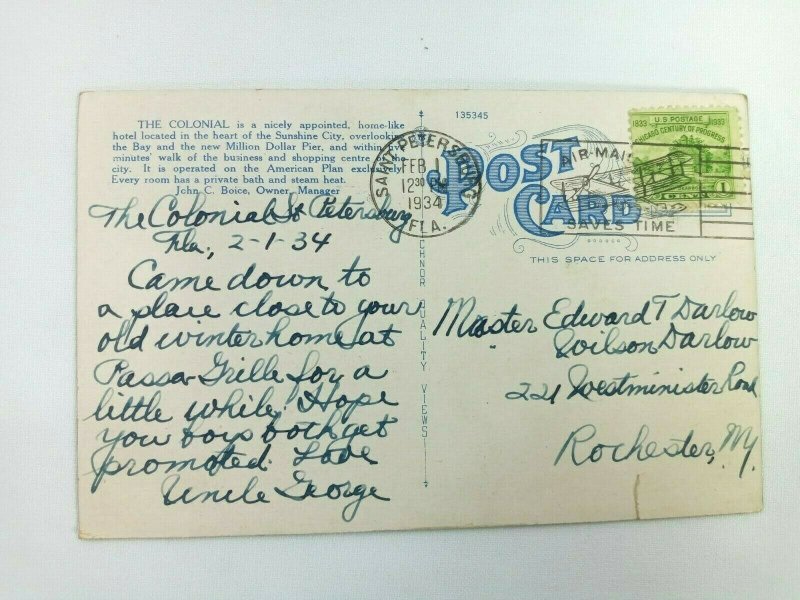 THE COLONIAL is a nicely appointed, home-like
hotel located in the heart of the Sunshine City, overlooking
the Bay and the new Million Dollar Pier, and within five
minutes' walk of the business and shopping centre of the
city. It is operated on the American Plan exclusively.
Every room has a private bath and steam heat.
John C. Boice, Owner, Manager
The Colonial St Petersburg
Fla, 2-1-34
Came down to
a place close to your
old winter home at
Passa-Grille for a
little while. Hope
you boys both get
promoted. Love
Uncle George
135345
SAINT PETERSBURG
FEB 1
12 30 PM
1934
FLA.
POST
CARD
AIR-MAIL
SAVES TIME
1833 U.S. POSTAGE 1933
CHICAGO CENTURY OF PROGRESS
1
THIS SPACE FOR ADDRESS ONLY
QUALITY VIEWS
Master Edward T Darlow
Wilson Darlow
221 Westminister Road
Rochester, NY.